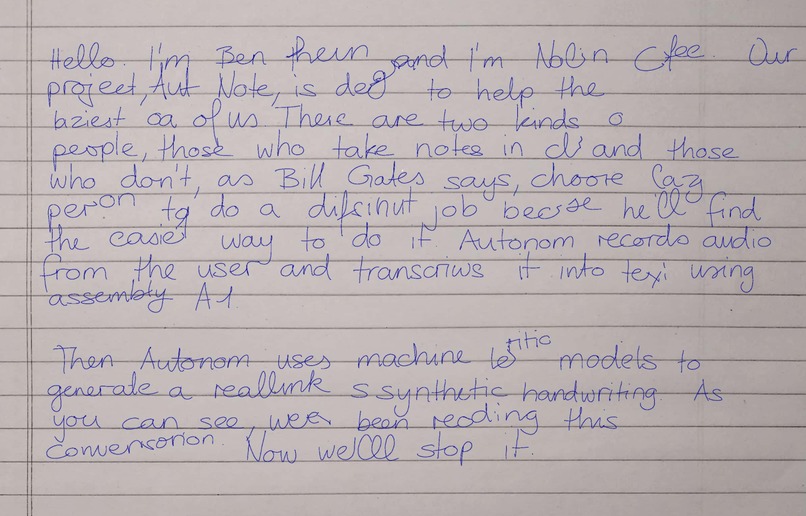 Hello. I'm Ben thern and I'm Nolin Cfee. Our
project, Aut Note, is deg to help the
laziest oa of us There are two kinds o
people, those who take notes in cl and those
who don't, as Bill Gates says, choore lazg
person tg do a difsinut job becsse he'll find
the easier way to do it. Autonom records audio
from the user and transcriws it into texi using
assembly A1.
Then Autonom uses machine models to
generate a reallink s synthetic handwriting. As
you can see, wee been recding this
conversorion. Now we'lll stop it.